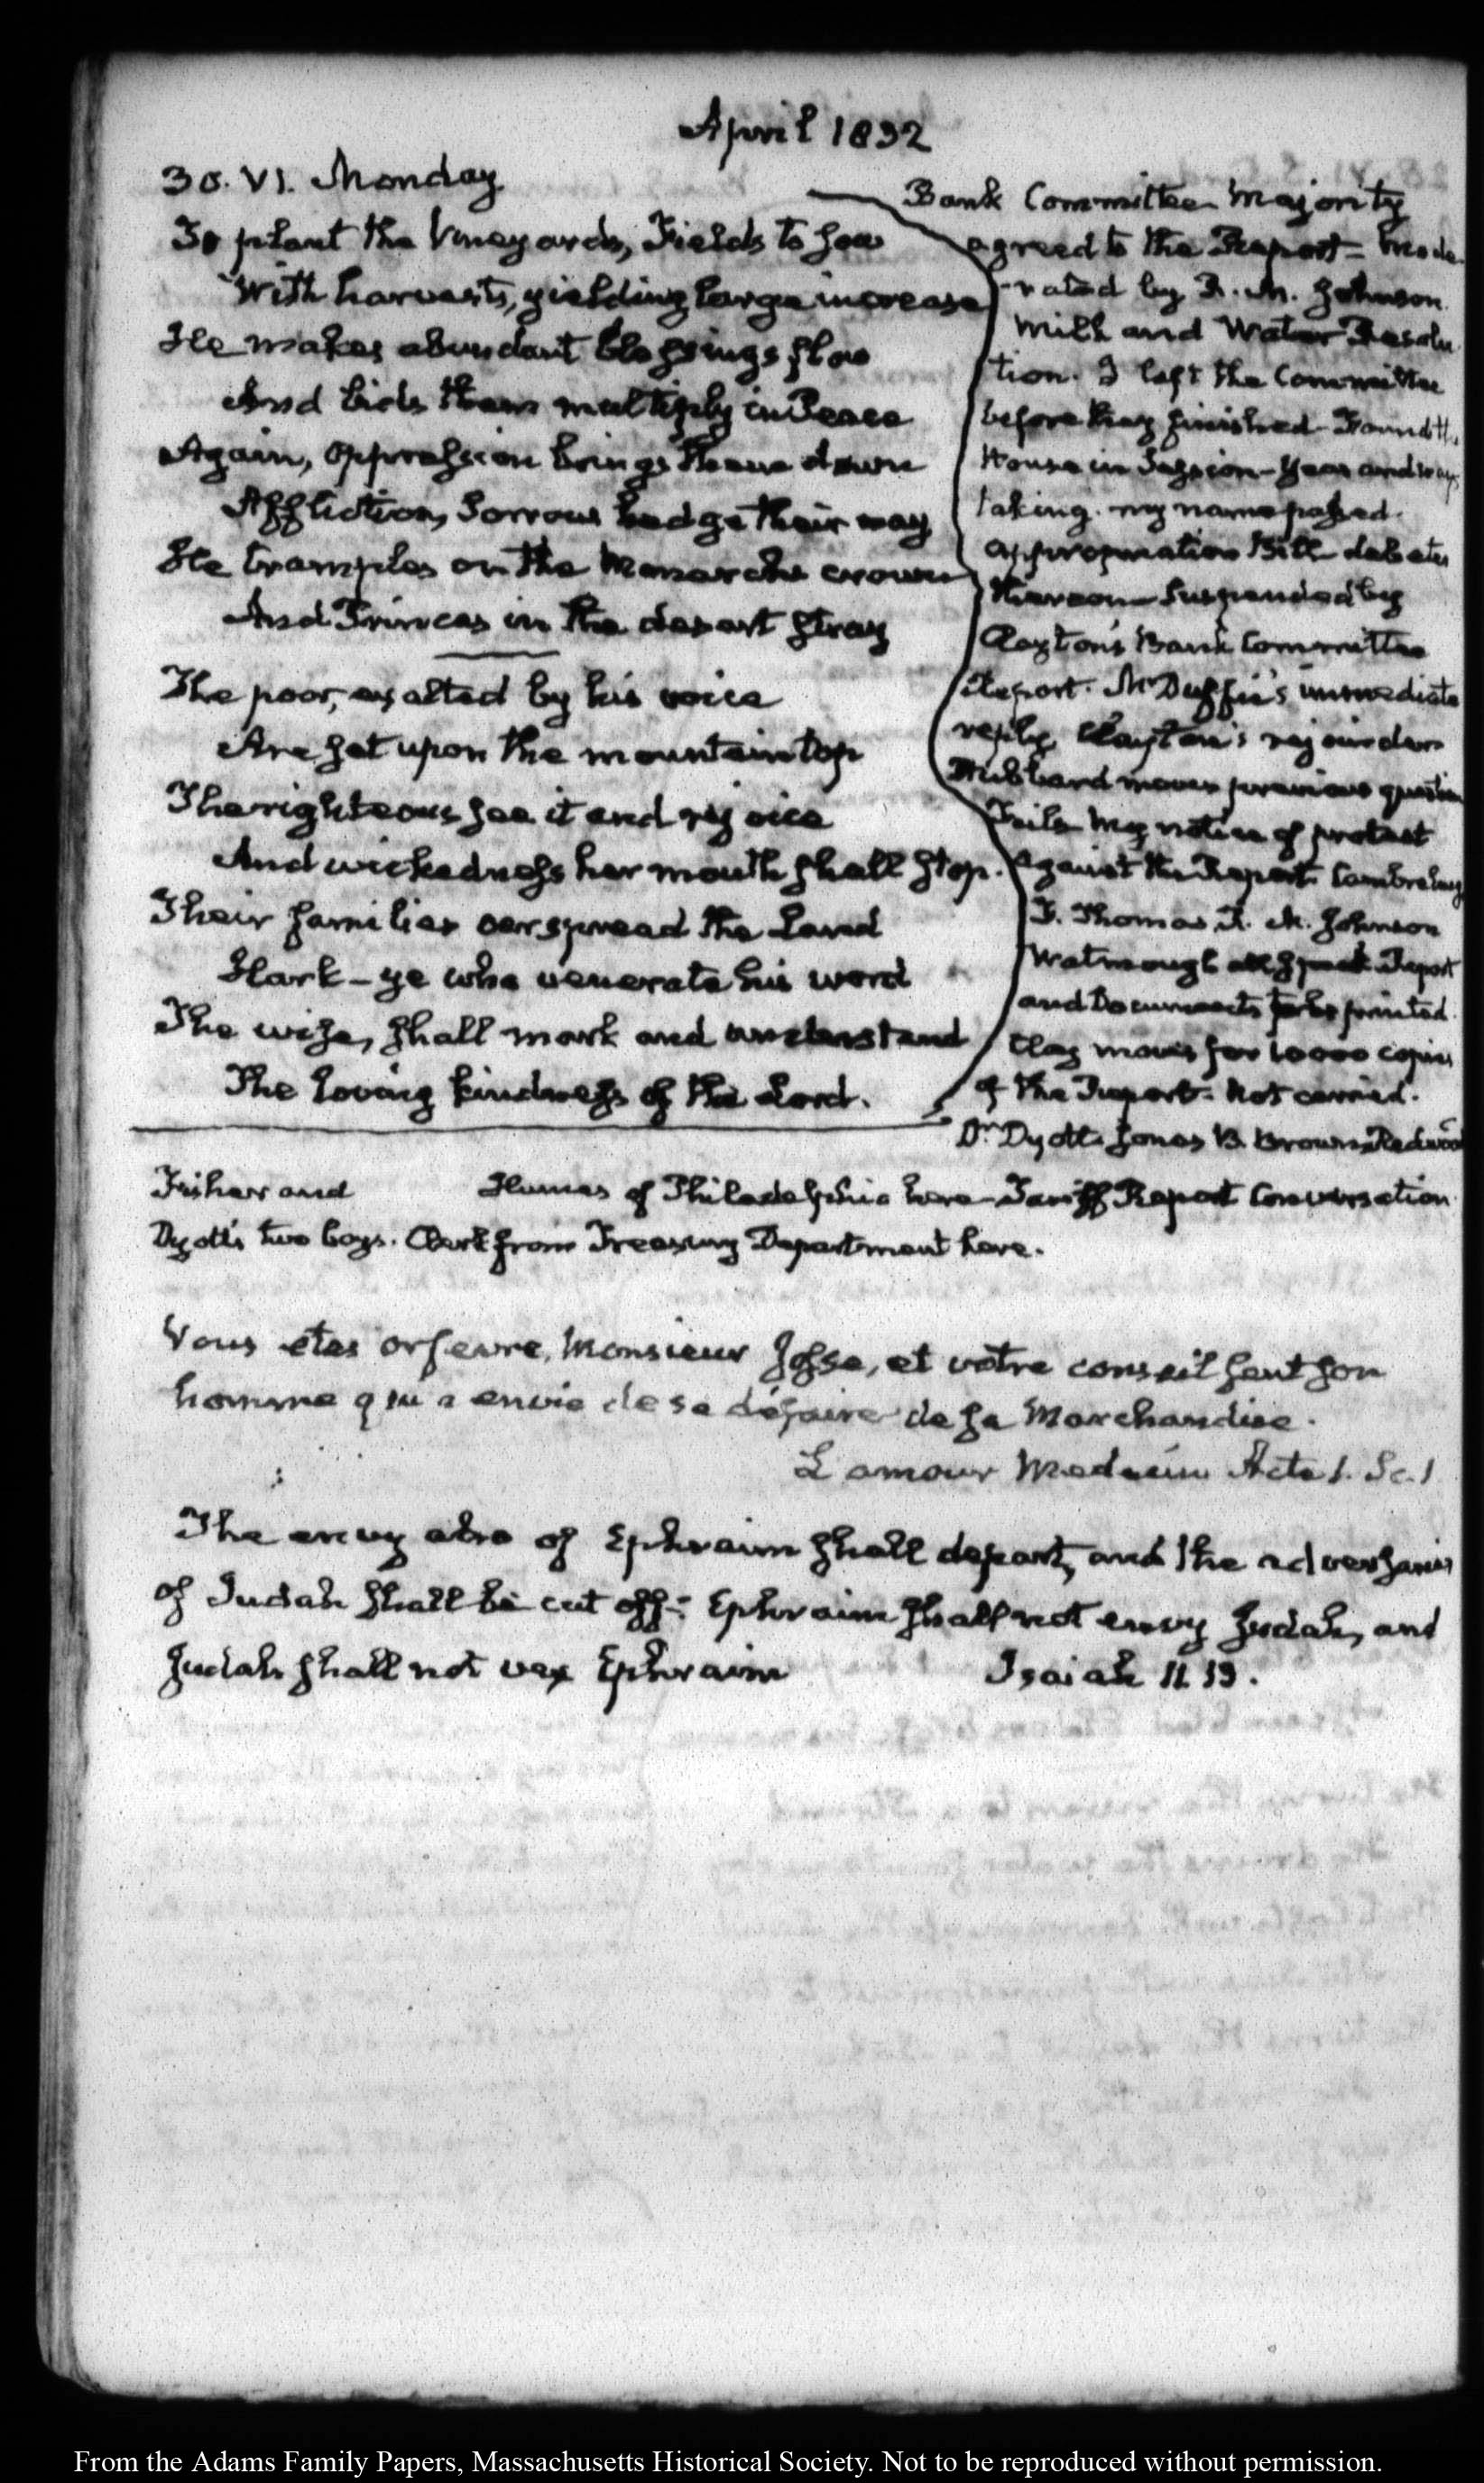 April 1832
30. VI. Monday
To plant the Vineyards, Fields to sow
With harvests, yielding large increase
He makes abundant blessings flow
And bids them multiply in Peace
Again, oppression brings them down
Affliction, Sorrow hedge their way
He tramples on the Monarchs crown
And Princes in the desart stray
The poor, exalted by his voice
Are set upon the mountain top
The righteous see it and rejoice
And wickedness her mouth shall stop.
Their families oerspread the Land
Hark - ye who venerate his word
The wise, shall mark and understand
The loving kindness of the Lord.
Bank Committee Majority
agreed to the Report - mode
-rated by R. M. Johnson
Milk and Water Resolu
tion. I left the Committee
before they finished - Found the
House in Session - Yeas and Nays
taking. my name passed.
appropriation Bill debate
thereon - Suspended by
Clayton's Bank Committee
Report. McDuffie's immediate
reply Clayton's rejoinder
Hubbard moves previous question
Fails my notice of protest
against the Report Cambreleng
F. Thomas R. M. Johnson
Watmough all speak Report
and Documents to be printed.
Clay moves for 10000 copies
of the Report - Not carried.
Dr. Dyott. Jones B. Brown Redwood
Fisher and Humes of Philadelphia here - Tariff Report Conversation
Dyott's two boys. Clerk from Treasury Department here.
Vous etes orfevre, Monsieur Josse, et votre conseil sent son
homme qui a envie de se défaire de sa Marchandise.
L'amour Medecin Acte 1. Sc. 1
The envy also of Ephraim shall depart, and the adversaries
of Judah shall be cut off: Ephraim shall not envy Judah, and
Judah shall not vex Ephraim Isaiah 11. 13.
From the Adams Family Papers, Massachusetts Historical Society. Not to be reproduced without permission.